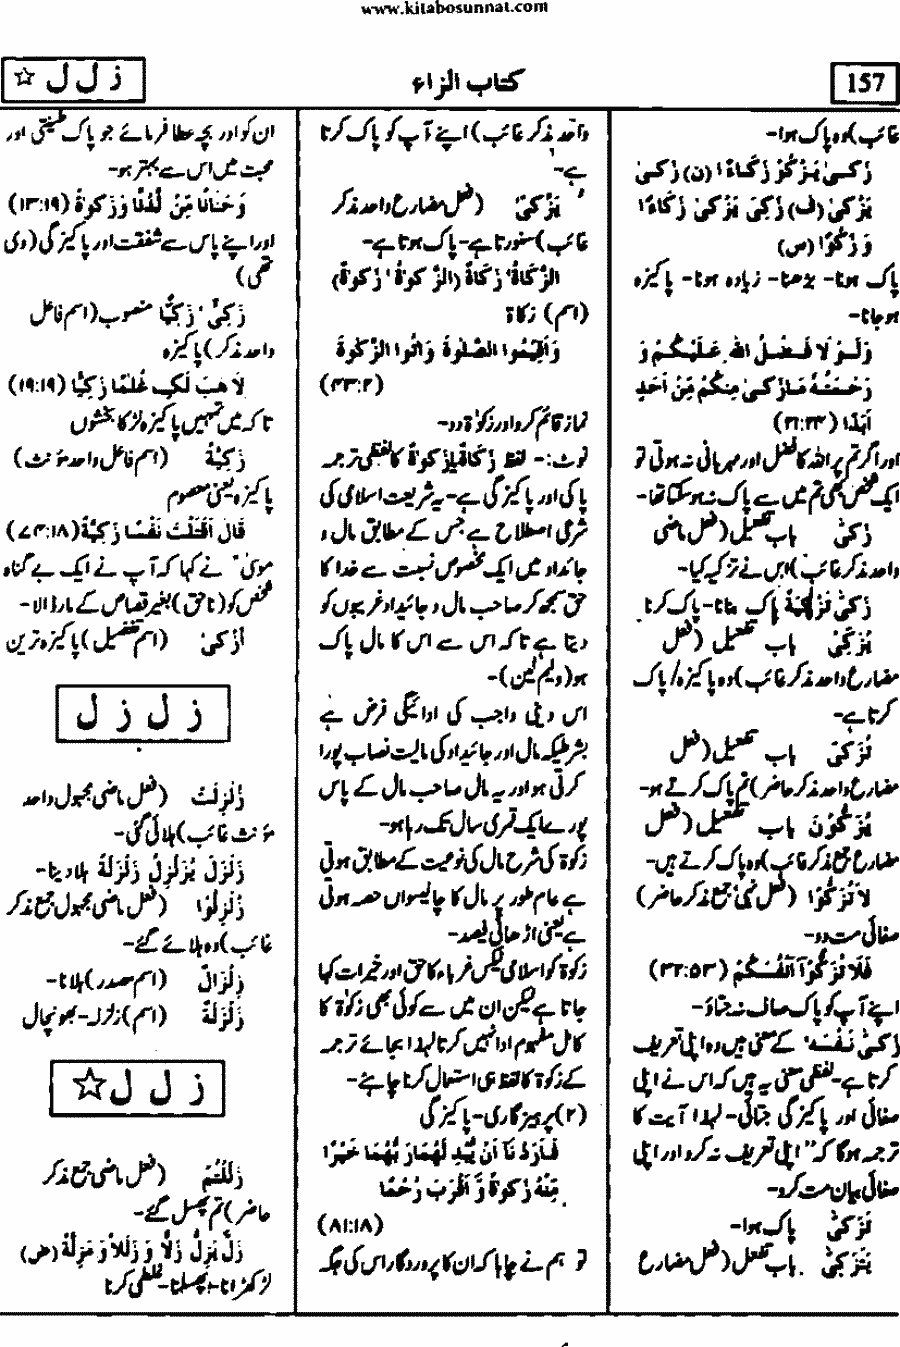 www.kitabosunnat.com
157
کتاب الزاء
ز ل ل ☆
غائب) وہ پاک ہوا۔
زَكـىٰ يَـزْكُوْ زَكَـاءً ا (ن) زَكـىٰ
يَزْكىٰ (ف) زَكِىَ يَزْكىٰ زَكَاءً ا
وَ زَكُوًّا (س)
پاک ہونا۔ بڑھنا۔ زیادہ ہونا۔ پاکیزہ
ہو جانا۔
وَلَـوْ لَا فَـضْـلُ اللهِ عَلَيْـكُـمْ وَ
رَحْـمَتُـهٗ مَـازَكـىٰ مِنكُمْ مِّنْ اَحَدٍ
اَبَدًا (۲۴:۲۱)
اور اگر تم پر اللہ کا فضل اور مہربانی نہ ہوتی تو
ایک شخص بھی تم میں سے پاک نہ ہو سکتا تھا۔
زَكّىٰ باب تفعیل (فعل ماضی
واحد مذکر غائب) اس نے تزکیہ کیا۔
زَكّىٰ تَزْكِيَةً پاک بنانا۔ پاک کرنا۔
يُزَكِّىْ باب تفعیل (فعل
مضارع واحد مذکر غائب) وہ پاکیزہ/پاک
کرتا ہے۔
تُزَكِّىْ باب تفعیل (فعل
مضارع واحد مذکر حاضر) تم پاک کرتے ہو۔
يُزَكُّوْنَ باب تفعیل (فعل
مضارع جمع مذکر غائب) وہ پاک کرتے ہیں۔
لَا تُزَكُّوْا (فعل نہی جمع مذکر حاضر)
صفائی مت دو۔
فَلَا تُزَكُّوْآ اَنْفُسَكُمْ (۵۳:۳۲)
اپنے آپ کو پاک صاف نہ جتاؤ۔
زَكّىٰ نَفْسَهٗ کے معنی ہیں وہ اپنی تعریف
کرتا ہے۔ لفظی معنی یہ ہیں کہ اس نے اپنی
صفائی اور پاکیزگی جتائی۔ لہٰذا آیت کا
ترجمہ ہوگا کہ "اپنی تعریف نہ کرو اور اپنی
صفائی بیان مت کرو۔
تَزَكّىٰ پاک ہوا۔
يَتَزَكّىٰ باب تفعل (فعل مضارع
واحد مذکر غائب) اپنے آپ کو پاک کرتا
ہے۔
يَزَّكّىٰ (فعل مضارع واحد مذکر
غائب) سنورتا ہے۔ پاک ہوتا ہے۔
الزَّكَاةُ، زَكَاةٌ (الزَّكوةُ، زَكوةٌ)
(اسم) زکاۃ
وَاَقِيْمُوا الصَّلٰوةَ وَاٰتُوا الزَّكٰوةَ
(۲:۴۳)
نماز قائم کرو اور زکوٰۃ دو۔
نوٹ:۔ لفظ زَكَاةٌ يا زَكٰوةٌ کا لفظی ترجمہ
پاکی اور پاکیزگی ہے۔ یہ شریعت اسلامی کی
شرعی اصطلاح ہے جس کے مطابق مال و
جائداد میں ایک مخصوص نسبت سے خدا کا
حق سمجھ کر صاحب مال و جائیداد غریبوں کو
دیتا ہے تاکہ اس سے اس کا مال پاک
ہو (ولیم لین)۔
اس دینی واجب کی ادائیگی فرض ہے
بشرطیکہ مال اور جائیداد کی مالیت نصاب پورا
کرتی ہو اور یہ مال صاحب مال کے پاس
پورے ایک قمری سال تک رہا ہو۔
زکوٰۃ کی شرح مال کی نوعیت کے مطابق ہوتی
ہے عام طور پر مال کا چالیسواں حصہ ہوتی
ہے یعنی اڑھائی فیصد۔
زکوٰۃ کو اسلامی ٹیکس غرباء کا حق اور خیرات کہا
جاتا ہے لیکن ان میں سے کوئی بھی زکوٰۃ کا
کامل مفہوم ادا نہیں کرتا لہٰذا بجائے ترجمہ
کے زکوٰۃ کا لفظ ہی استعمال کرنا چاہئے۔
(۲) پرہیزگاری۔ پاکیزگی
فَـاَرَدْ نَـآ اَنْ يُّبْدِ لَهُمَا رَ بُّهُمَا خَيْرًا
مِّنْهُ زَكٰوةً وَّ اَقْرَبَ رُحْمًا
(۱۸:۸۱)
تو ہم نے چاہا کہ ان کا پروردگار اس کی جگہ
ان کو اور بچہ عطا فرمائے جو پاک طینتی اور
محبت میں اس سے بہتر ہو۔
وَ حَنَانًا مِّنْ لَّدُنَّا وَ زَكٰوةً (۱۹:۱۳)
اور اپنے پاس سے شفقت اور پاکیزگی (دی
تھی)
زَكِىٌّ، زَكِيًّا منصوب (اسم فاعل
واحد مذکر) پاکیزہ
لِاَ هَبَ لَكِ غُلٰمًا زَكِيًّا (۱۹:۱۹)
تاکہ میں تمہیں پاکیزہ لڑکا بخشوں
زَكِيَّةً (اسم فاعل واحد مؤنث)
پاکیزہ یعنی معصوم
قَالَ اَقَتَلْتَ نَفْسًا زَكِيَّةً (۱۸:۷۴)
موسیٰ نے کہا کہ آپ نے ایک بے گناہ
شخص کو (ناحق) بغیر قصاص کے مار ڈالا۔
اَزْكىٰ (اسم تفضیل) پاکیزہ ترین
ز ل ز ل
زُلْزِلَتْ (فعل ماضی مجہول واحد
مؤنث غائب) ہلائی گئی۔
زَلْزَلَ يُزَلْزِلُ زَلْزَلَةً ہلا دینا۔
زُلْزِلُوْا (فعل ماضی مجہول جمع مذکر
غائب) وہ ہلائے گئے۔
زِلْزَالٌ (اسم مصدر) ہلانا۔
زَلْزَلَةٌ (اسم) زلزلہ۔ بھونچال
ز ل ل ☆
زَلَلْتُمْ (فعل ماضی جمع مذکر
حاضر) تم پھسل گئے۔
زَلَّ يَزِلُّ زَلًّا وَ زَلَلاً وَ مَزِلَّةً (ض)
لڑکھڑانا۔ پھسلنا۔ غلطی کرنا